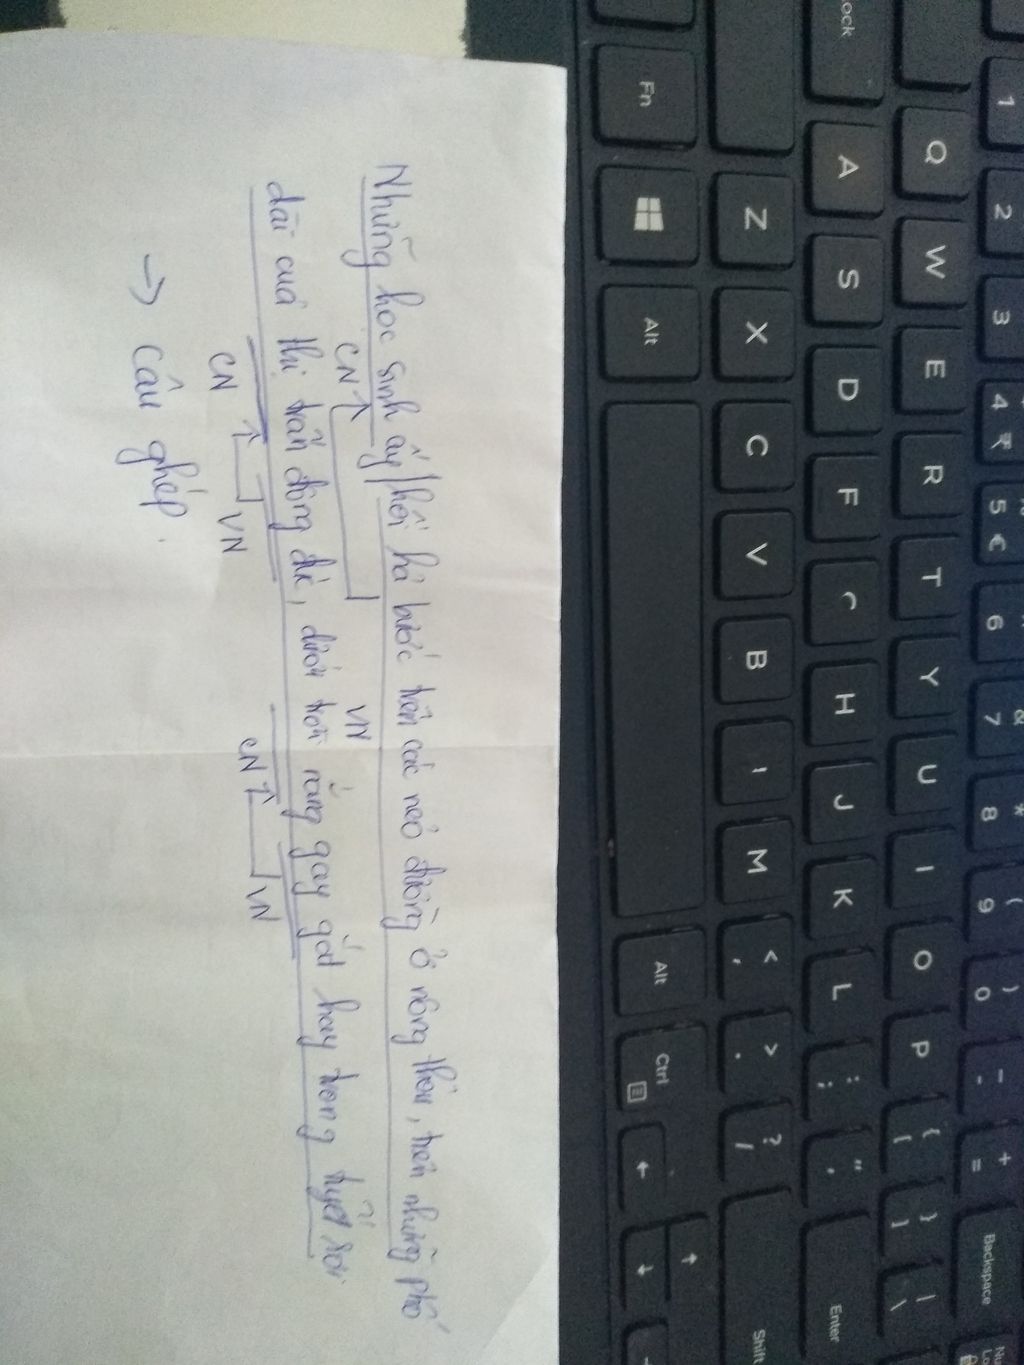 Những học sinh ấy/hối hả bước trên các nẻo đường ở nông thôn, trên những phố
CN VN
dài của thị trấn đông đúc, dưới trời nắng gay gắt hay trong tuyết rơi
CN VN CN VN
→ Câu ghép.
Lock
1 2 3 4 ₹ 5 € 6 7 & 8 * 9 ( 0 ) - _ = + Backspace
Q W E R T Y U I O P { [ } ] | \
A S D F H J K L : ; " ' Enter
Z X C V B M < , > . ? / Shift
Fn Alt Alt Ctrl